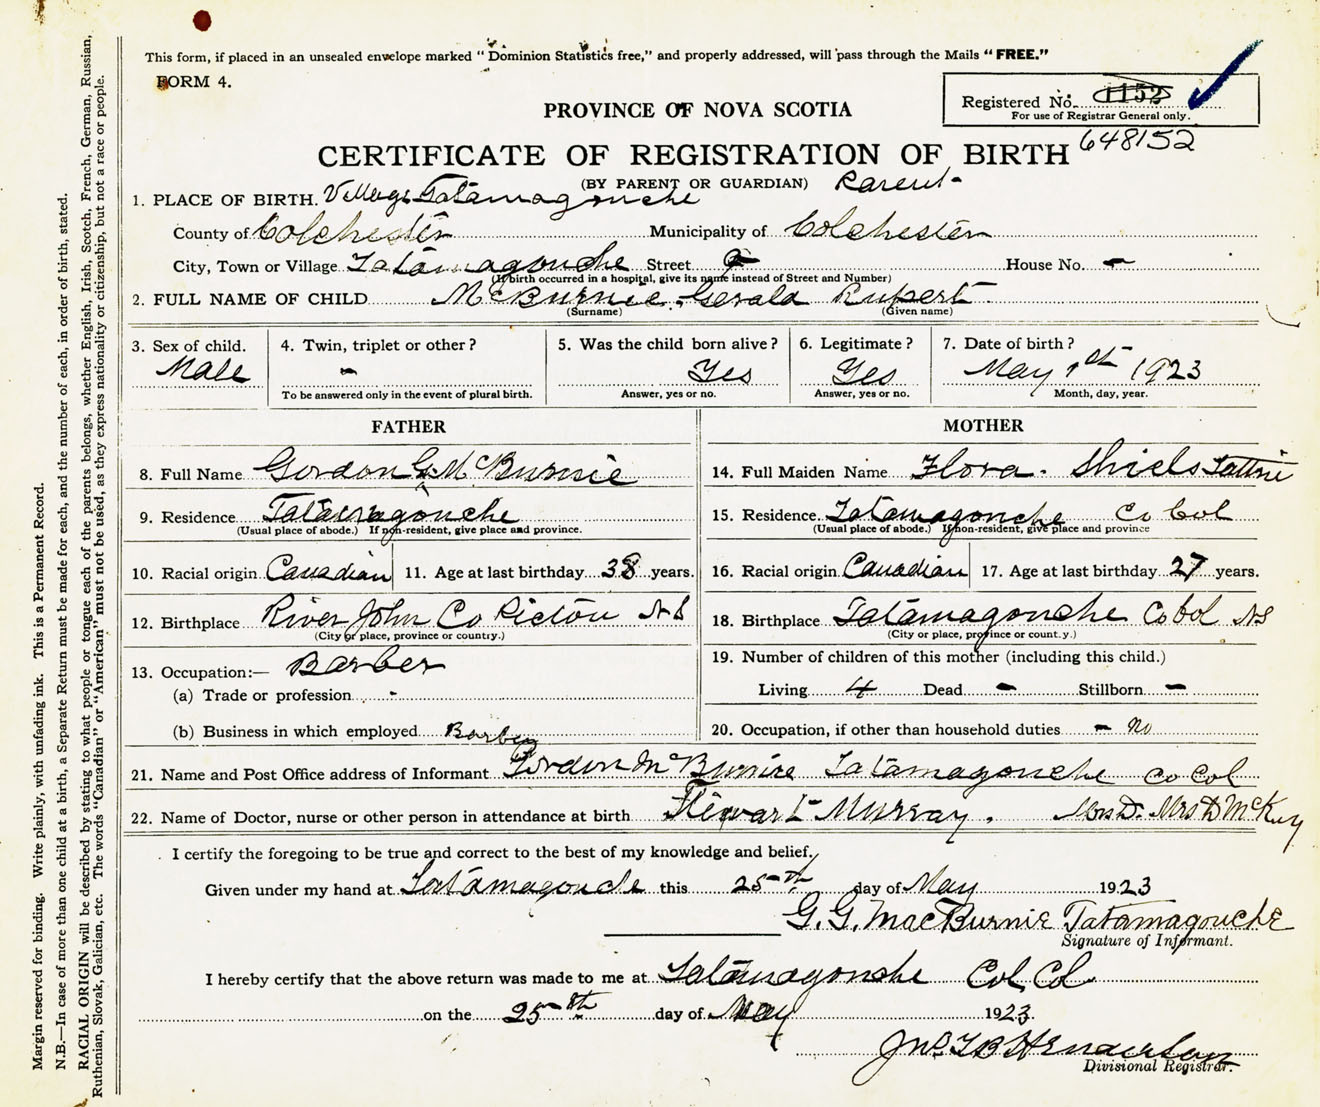 This form, if placed in an unsealed envelope marked "Dominion Statistics free," and properly addressed, will pass through the Mails "FREE."
FORM 4.
Registered No. 1152
For use of Registrar General only.
648152
PROVINCE OF NOVA SCOTIA
CERTIFICATE OF REGISTRATION OF BIRTH
(BY PARENT OR GUARDIAN) Parent
1. PLACE OF BIRTH. Village Tatamagouche
County of Colchester Municipality of Colchester
City, Town or Village Tatamagouche Street - House No. -
(If birth occurred in a hospital, give its name instead of Street and Number)
2. FULL NAME OF CHILD McBurnie, Gerald Rupert
(Surname) (Given name)
3. Sex of child. 4. Twin, triplet or other? 5. Was the child born alive? 6. Legitimate? 7. Date of birth?
Male - Yes Yes May 1st 1923
To be answered only in the event of plural birth. Answer, yes or no. Answer, yes or no. Month, day, year.
FATHER MOTHER
8. Full Name Gordon G. McBurnie 14. Full Maiden Name Flora. Shiels Tattrie
9. Residence Tatamagouche 15. Residence Tatamagouche Co Col
(Usual place of abode.) If non-resident, give place and province. (Usual place of abode.) If non-resident, give place and province
10. Racial origin Canadian 11. Age at last birthday 38 years. 16. Racial origin Canadian 17. Age at last birthday 27 years.
12. Birthplace River John Co Pictou N S 18. Birthplace Tatamagouche Co Col NS
(City or place, province or country.) (City or place, province or country.)
13. Occupation:— Barber 19. Number of children of this mother (including this child.)
(a) Trade or profession - Living 4 Dead - Stillborn -
(b) Business in which employed Barber 20. Occupation, if other than household duties - No
21. Name and Post Office address of Informant Gordon McBurnie Tatamagouche Co Col
22. Name of Doctor, nurse or other person in attendance at birth Murray. Mrs D McKay
I certify the foregoing to be true and correct to the best of my knowledge and belief.
Given under my hand at Tatamagouche this 25th day of May 1923
G. G. MacBurnie Tatamagouche
Signature of Informant.
I hereby certify that the above return was made to me at Tatamagouche Col Co
on the 25th day of May 1923.
Jno. T B Henderson
Divisional Registrar.
Margin reserved for binding. Write plainly, with unfading ink. This is a Permanent Record.
N.B.—In case of more than one child at a birth, a Separate Return must be made for each, and the number of each, in order of birth, stated.
RACIAL ORIGIN will be described by stating to what people or tongue each of the parents belongs, whether English, Irish, Scotch, French, German, Russian,
Ruthenian, Slovak, Galician, etc. The words "Canadian" or "American" must not be used, as they express nationality or citizenship, but not a race or people.